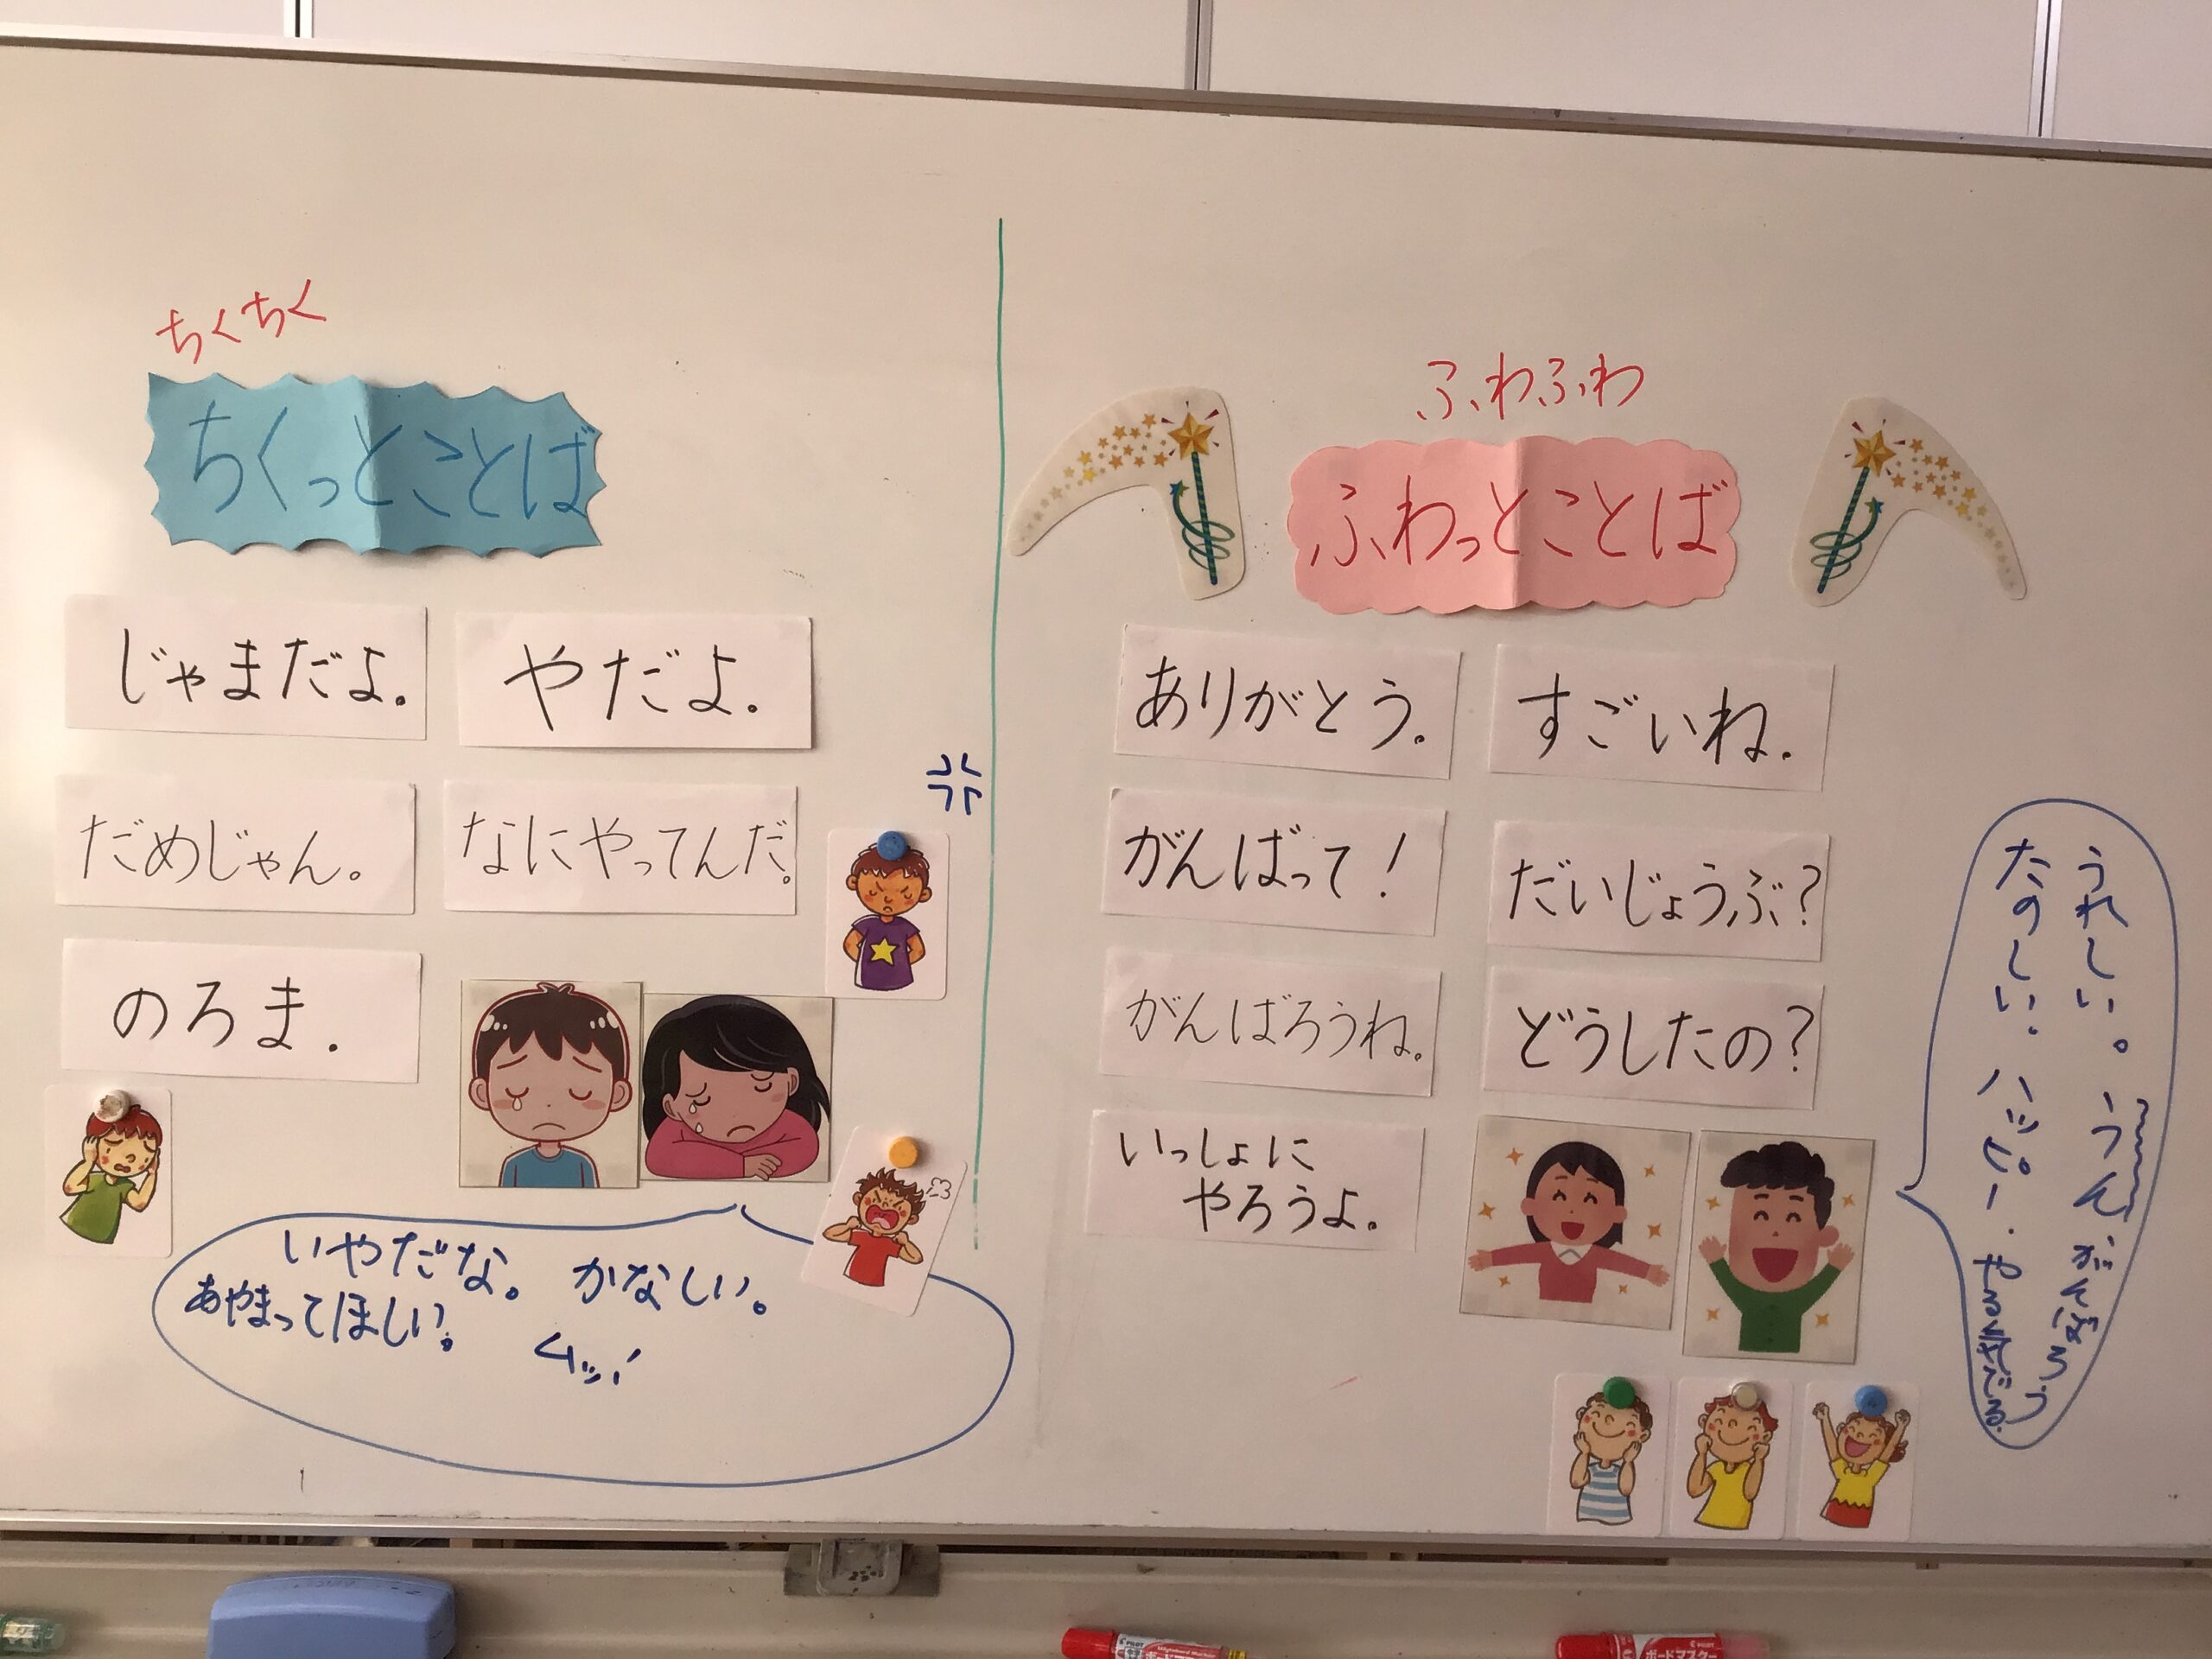 ちくちく
ちくっとことば
じゃまだよ。
やだよ。
だめじゃん。
なにやってんだ。
のろま.
いやだな。 かなしい。
あやまってほしい。 ムッ!
ふわふわ
ふわっとことば
ありがとう。
すごいね。
がんばって!
だいじょうぶ?
がんばろうね。
どうしたの?
いっしょに
やろうよ。
うれしい。 うん がんばろう
たのしい. ハッピー. やる気がでる.
PILOT
ボードマスター
PILOT
ボードマスター